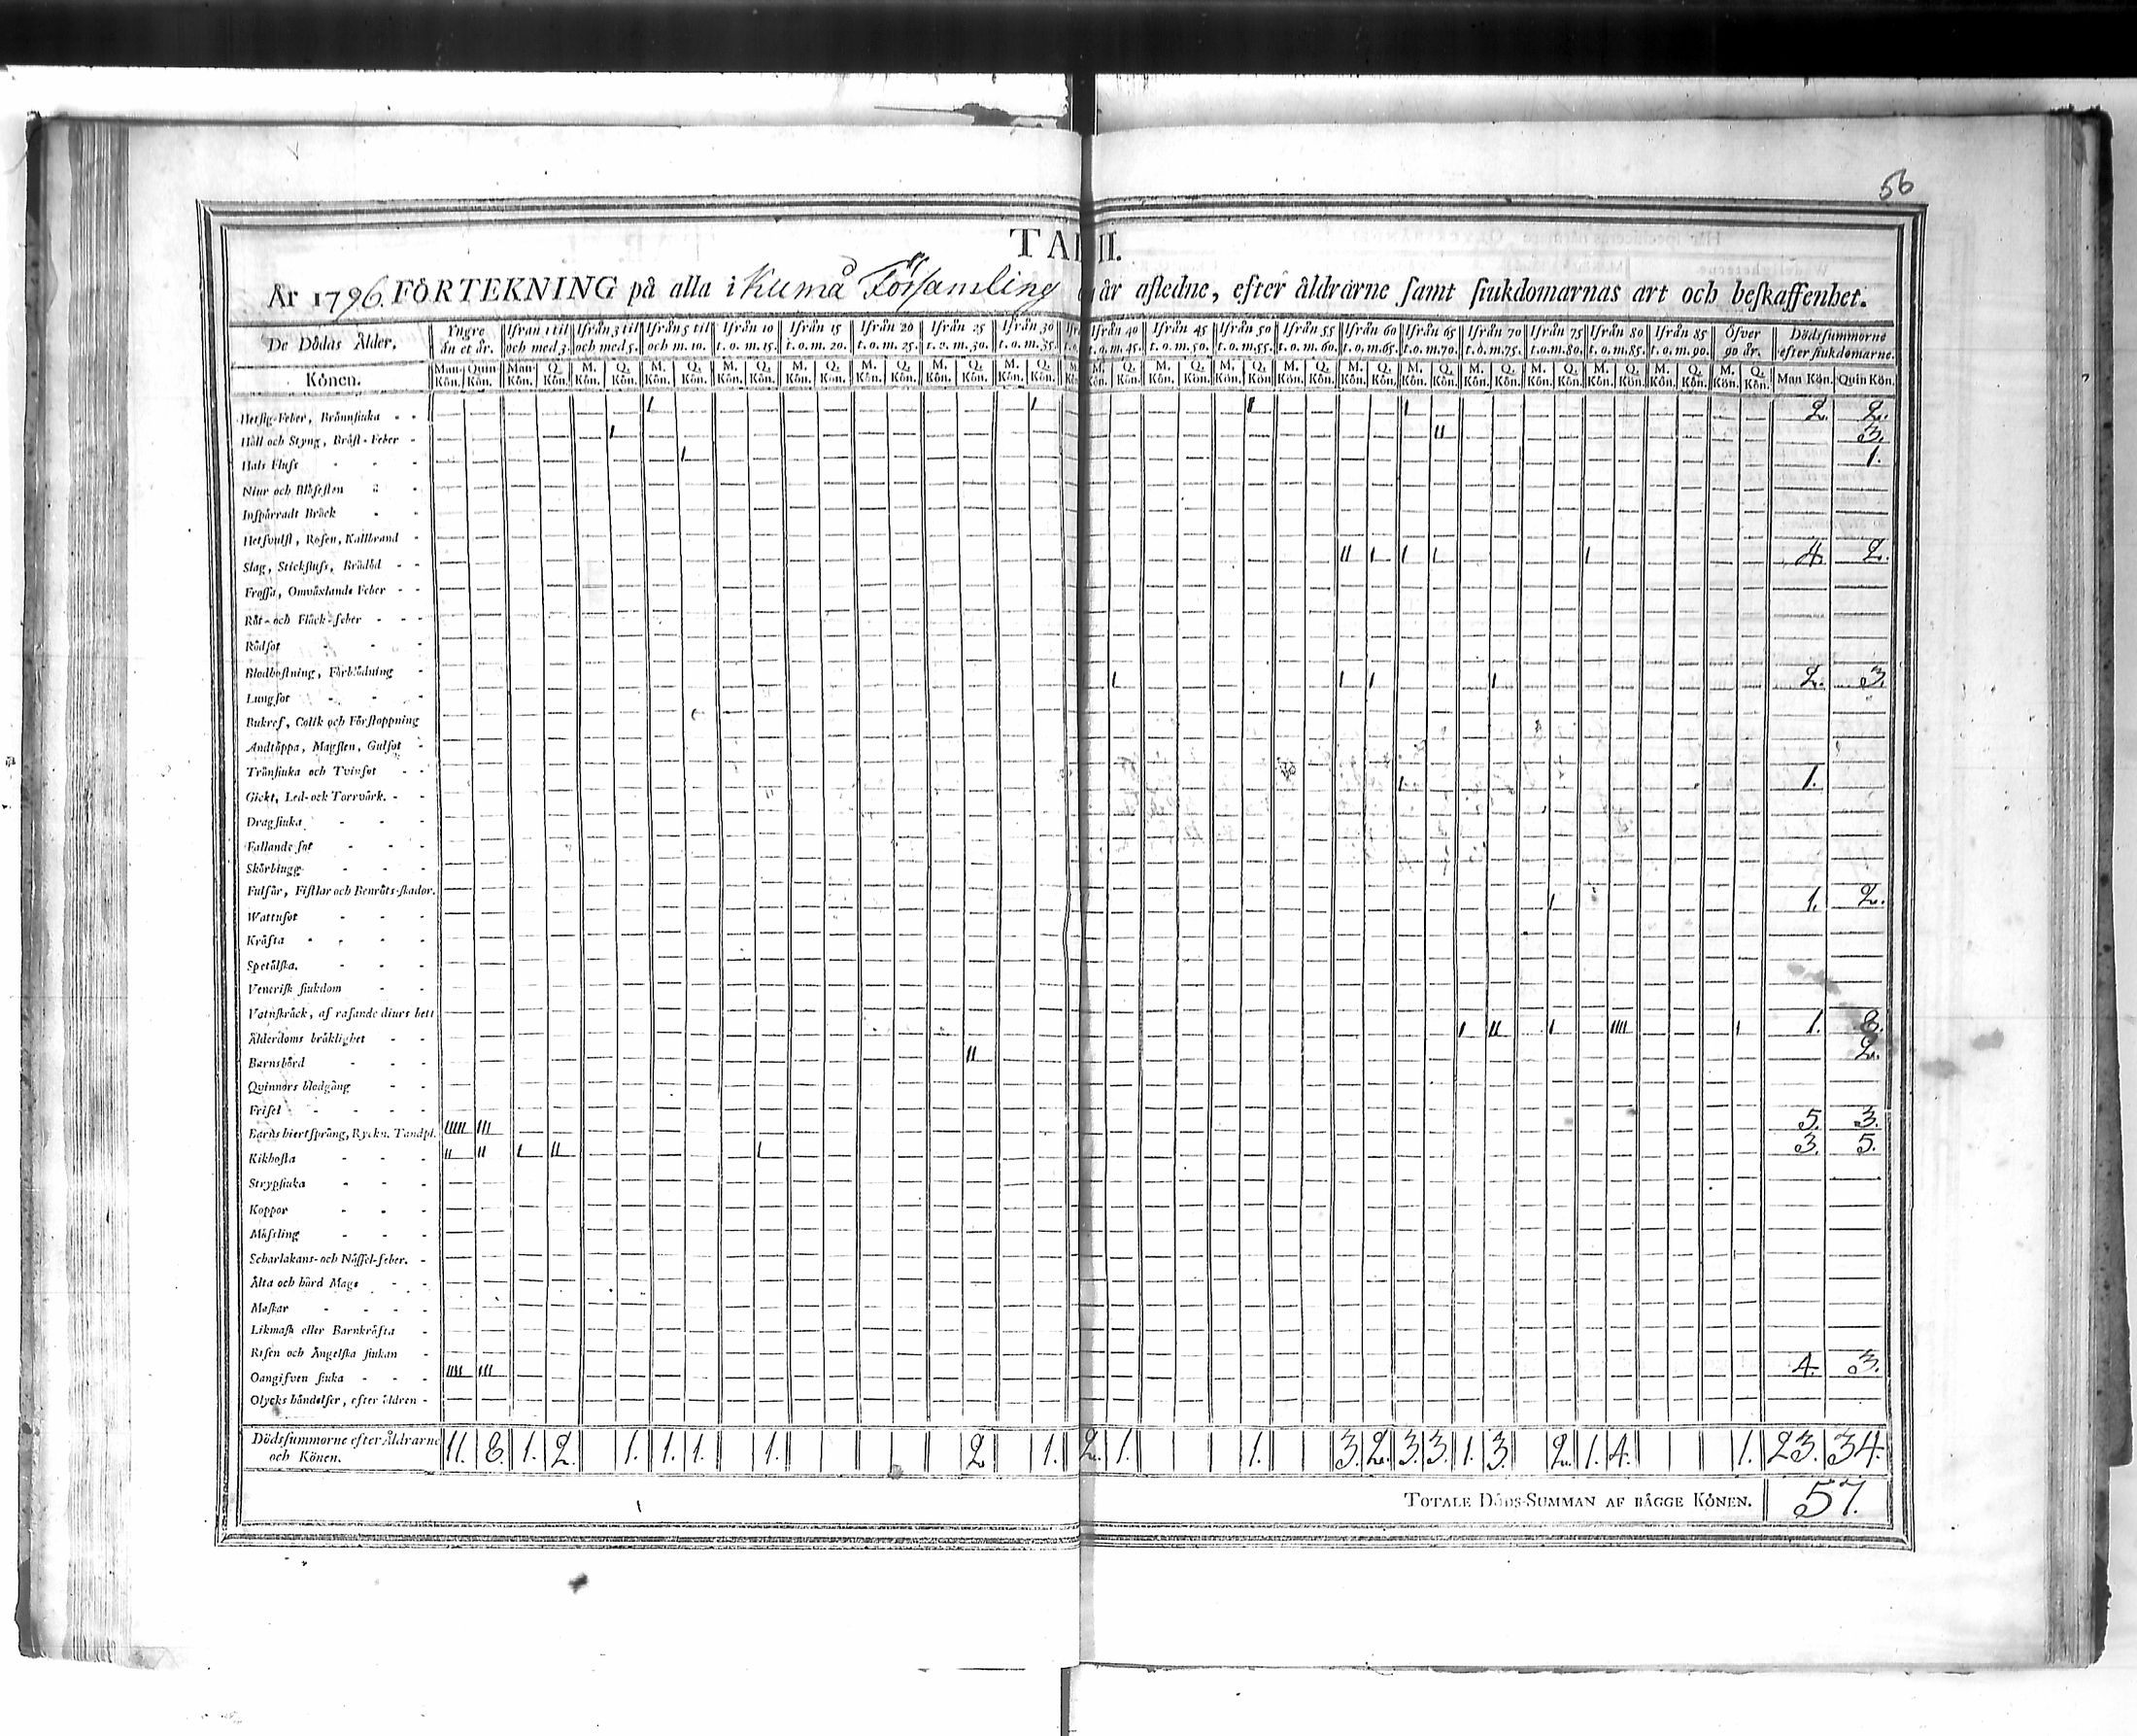 56
TA II.
År 1796. FÖRTEKNING på alla i Kumå Församling år afledne, efter åldrarne samt siukdomarnas art och beskaffenhet.
De Dödas Ålder. Yngre än et år. Ifrån 1 til och med 3. Ifrån 3 til och med 5. Ifrån 5 til och m. 10. Ifrån 10 t. o. m. 15. Ifrån 15 t. o. m. 20. Ifrån 20 t. o. m. 25. Ifrån 25 t. o. m. 30. Ifrån 30 t. o. m. 35. Ifrån 40 t. o. m. 45. Ifrån 45 t. o. m. 50. Ifrån 50 t. o. m. 55. Ifrån 55 t. o. m. 60. Ifrån 60 t. o. m. 65. Ifrån 65 t. o. m. 70. Ifrån 70 t. o. m. 75. Ifrån 75 t. o. m. 80. Ifrån 80 t. o. m. 85. Ifrån 85 t. o. m. 90. Öfver 90 år. Dödssummorne efter siukdomarne.
Könen. Man-Kön. Quin-Kön. Man-Kön. Q. Kön. M. Kön. Q. Kön. M. Kön. Q. Kön. M. Kön. Q. Kön. M. Kön. Q. Kön. M. Kön. Q. Kön. M. Kön. Q. Kön. M. Kön. Q. Kön. M. Kön. Q. Kön. M. Kön. Q. Kön. M. Kön. Q. Kön. M. Kön. Q. Kön. M. Kön. Q. Kön. M. Kön. Q. Kön. M. Kön. Q. Kön. M. Kön. Q. Kön. M. Kön. Q. Kön. M. Kön. Q. Kön. M. Kön. Q. Kön. Man Kön. Quin Kön.
Hetsig-Feber, Brånnsiuka - - I I I I 2. 2.
Håll och Styng, Bröst-Feber - I II 3.
Hals Flufs - - - I 1.
Niur och Blåsesten - -
Inspärradt Bråck - -
Hetsvulst, Rosen, Kallbrand -
Slag, Stickflufs, Brådöd - - II I I I I 4. 2.
Frossa, Omväxlande Feber - -
Röt- och Fläck-feber - - -
Rödsot - - -
Blodhostning, Förblödning -
Lungsot - - - I I I I 2. 3.
Bukref, Colik och Förstoppning
Andtäppa, Magsten, Gulsot -
Trånsiuka och Tvinsot - -
Gickt, Led- och Torrvärk. - - I 1.
Dragsiuka - - -
Fallande sot - - -
Skörbiugg - - -
Fulsår, Fistlar och Benröts-skador.
Wattusot - - - I 1. 2.
Kräfta - - - -
Spetålska. - - -
Venerisk siukdom - -
Vatuskräck, af rasande diurs bett
Ålderdoms bräklighet - - I II I IIII I 1. 8.
Barnsbörd - - - II 2.
Quinnors blodgång - -
Frisel - - - -
Barns hiertsprång, Ryckn. Tandpl. IIIII III 5. 3.
Kikhosta - - - II II I II I 3. 5.
Strypsiuka - - -
Koppor - - -
Mässling - - -
Scharlakans- och Nässel-feber. -
Älta och hård Mage - -
Maskar - - - -
Likmask eller Barnkräfta -
Risen och Ängelska siukan -
Oangifven siuka - - - IIII III 4. 3.
Olycks händelser, efter åldren -
Dödssummorne efter Åldrarne och Könen. 11. 8. 1. 2. 1. 1. 1. 1. 2 1. 2. 1. 1. 3. 2. 3. 3. 1. 3. 2. 1. 4. 1. 23. 34.
TOTALE DÖDS-SUMMAN AF BÄGGE KÖNEN. 57.